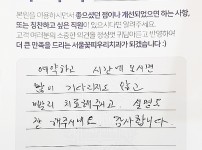 본원을 이용하시면서 좋으셨던 점이나 개선되었으면 하는 사항,
또는 칭찬하고 싶은 직원이 있으시다면 알려주세요.
고객 여러분의 소중한 의견을 정성껏 귀담아듣고 반영하여
더 큰 만족을 드리는 서울꽃피우리치과가 되겠습니다 :)
예약하고 시간에 오시면
많이 기다리지도 않고
빨리 치료해주시고 설명도
잘 해주셔서 감사합니다.